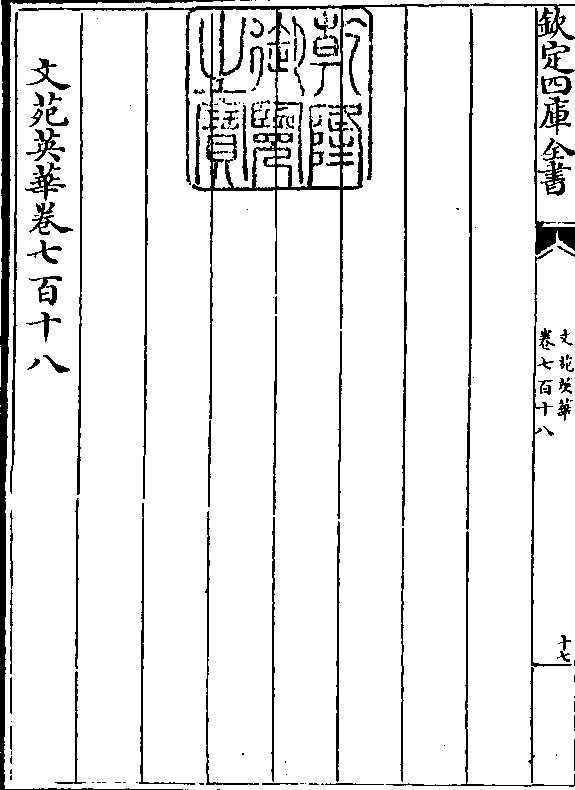 欽定四庫全書
文苑英華
卷七百十八
十七
乾隆
御覽
之寶
文苑英華卷七百十八